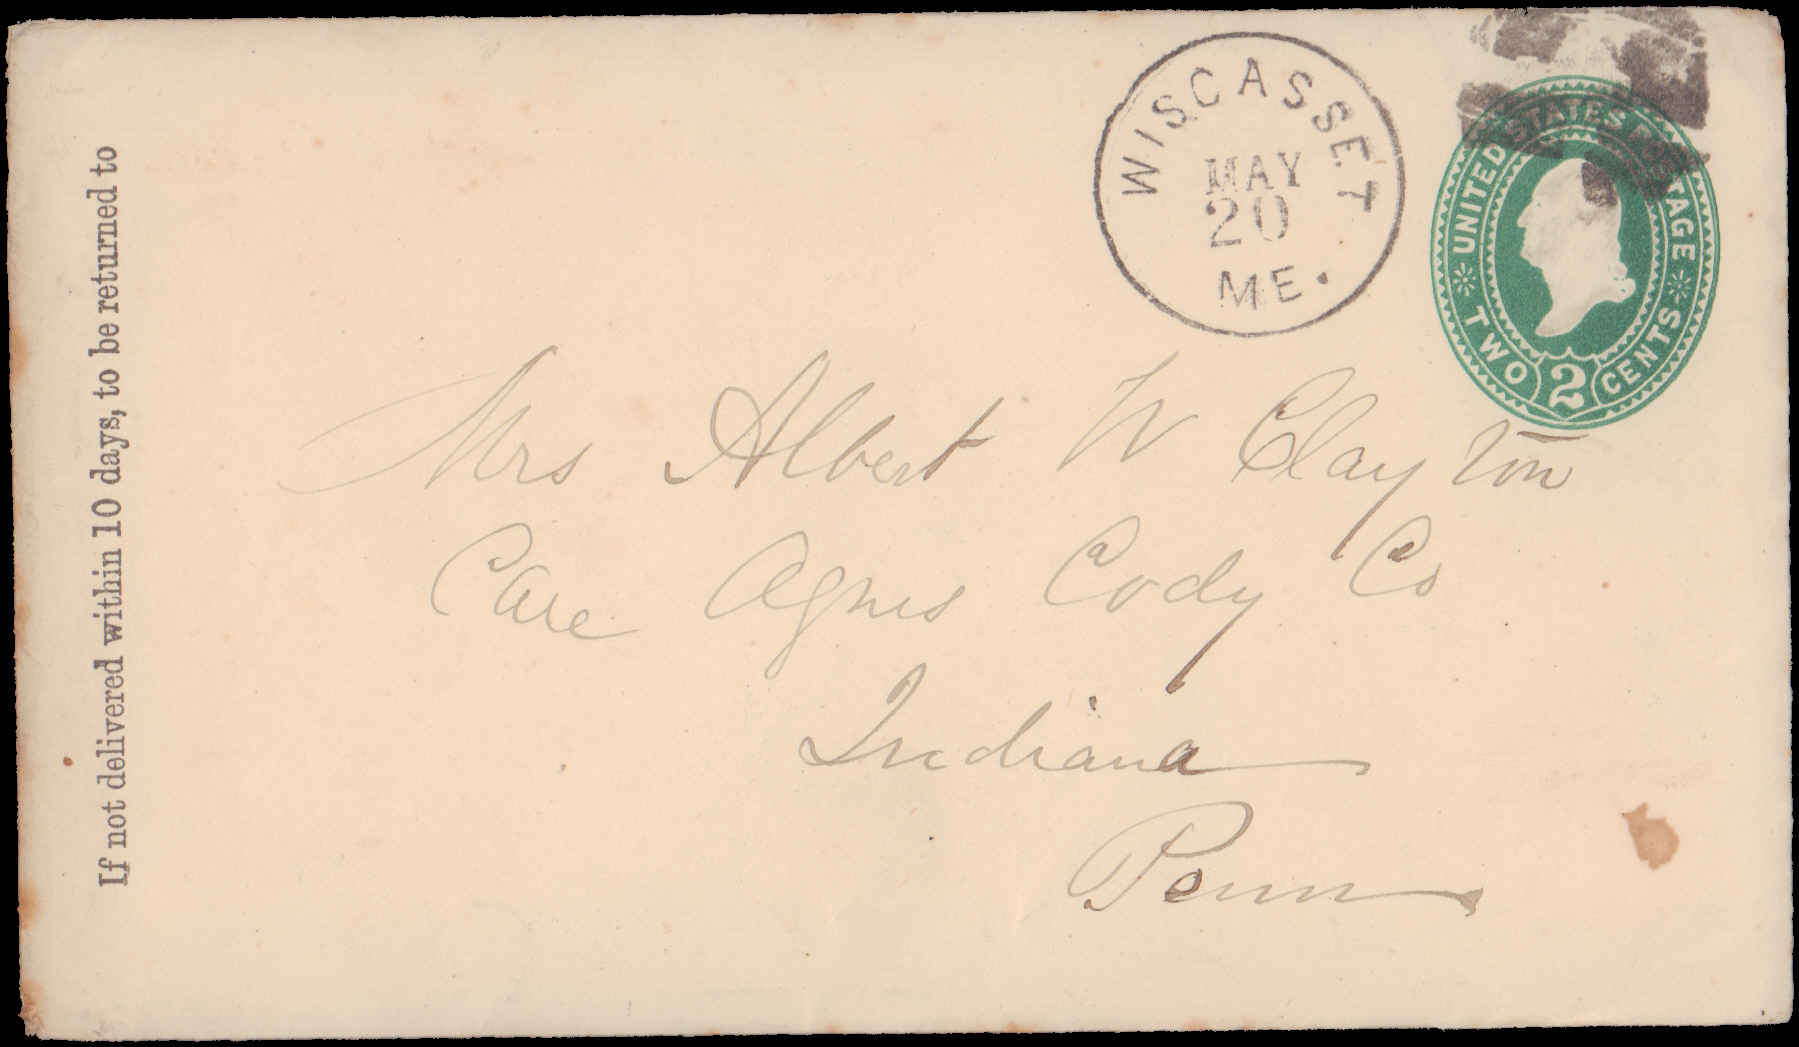 If not delivered within 10 days, to be returned to
WISCASSET
MAY
20
ME.
UNITED STATES POSTAGE
TWO 2 CENTS
Mrs Albert W Clayton
Care Agnes Cody Co
Indiana
Penn